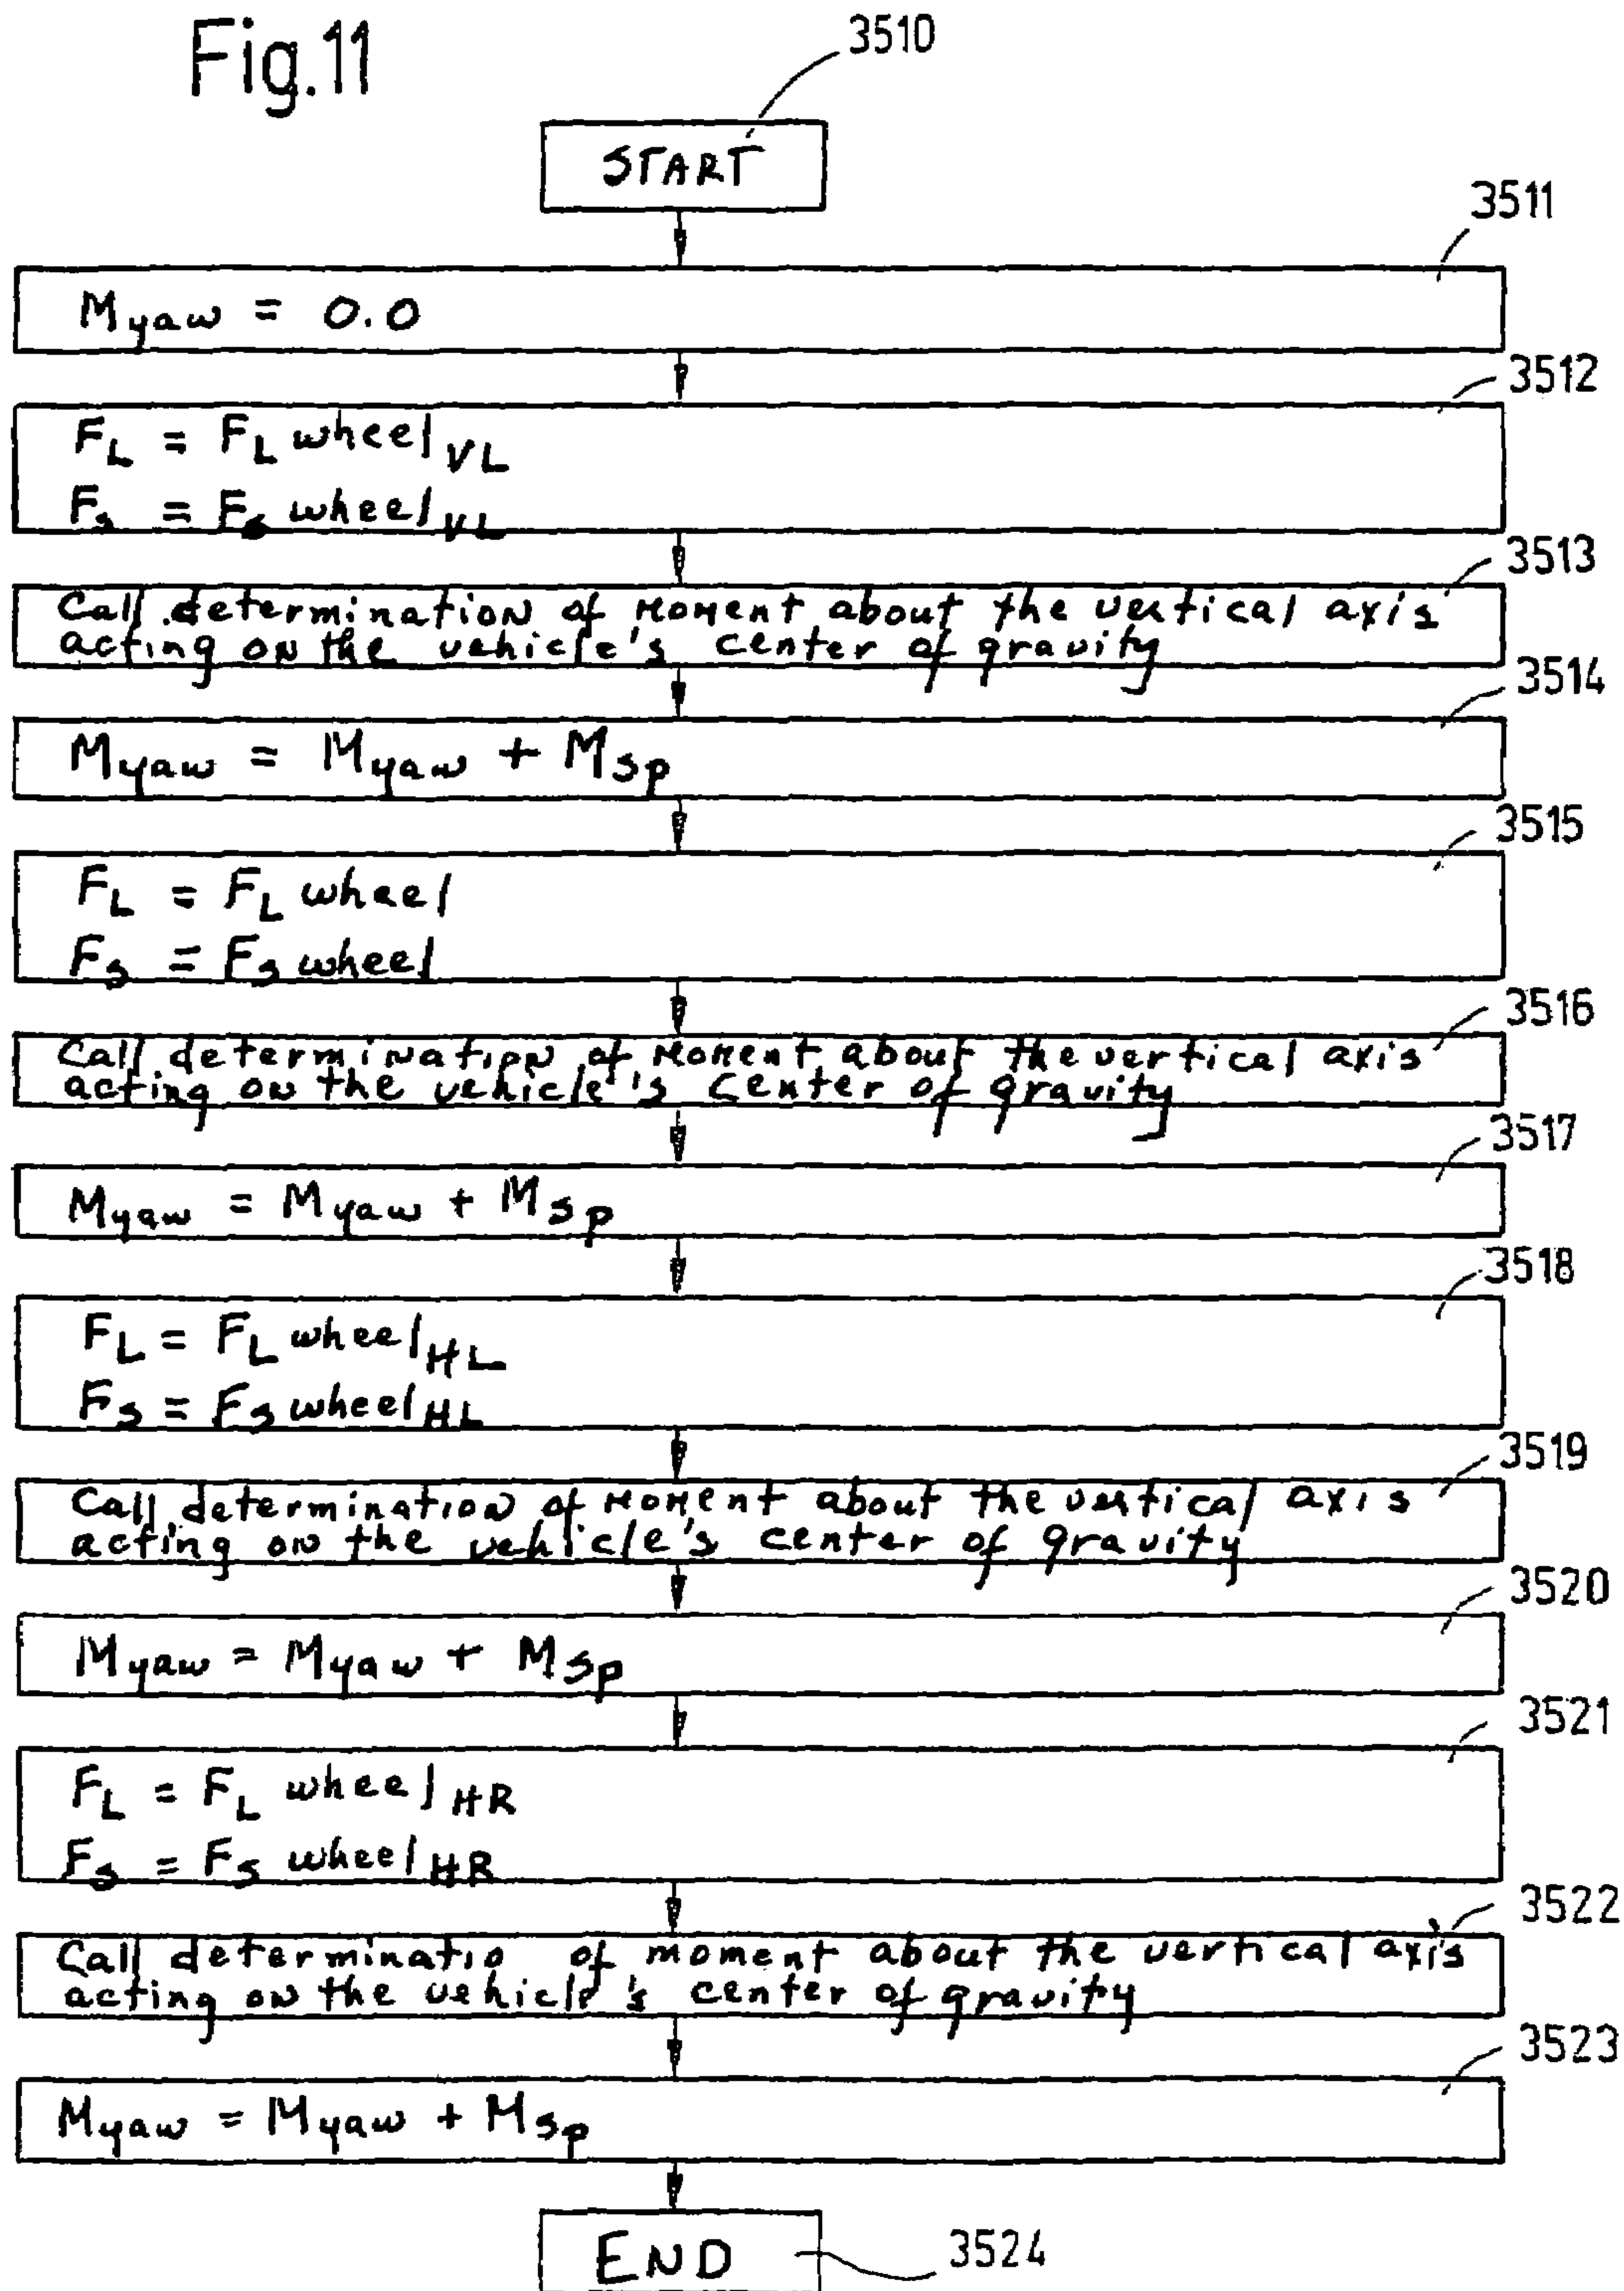 Fig.11
3510
START
3511
M yaw = 0.0
3512
F L = F L wheel VL
F s = F s wheel VL
3513
Call determination of moment about the vertical axis
acting on the vehicle's center of gravity
3514
M yaw = M yaw + M sp
3515
F L = F L wheel
F s = F s wheel
3516
Call determination of moment about the vertical axis
acting on the vehicle's center of gravity
3517
M yaw = M yaw + M sp
3518
F L = F L wheel HL
F s = F s wheel HL
3519
Call determination of moment about the vertical axis
acting on the vehicle's center of gravity
3520
M yaw = M yaw + M sp
3521
F L = F L wheel HR
F s = F s wheel HR
3522
Call determinatio of moment about the vertical axis
acting on the vehicle's center of gravity
3523
M yaw = M yaw + M sp
END
3524